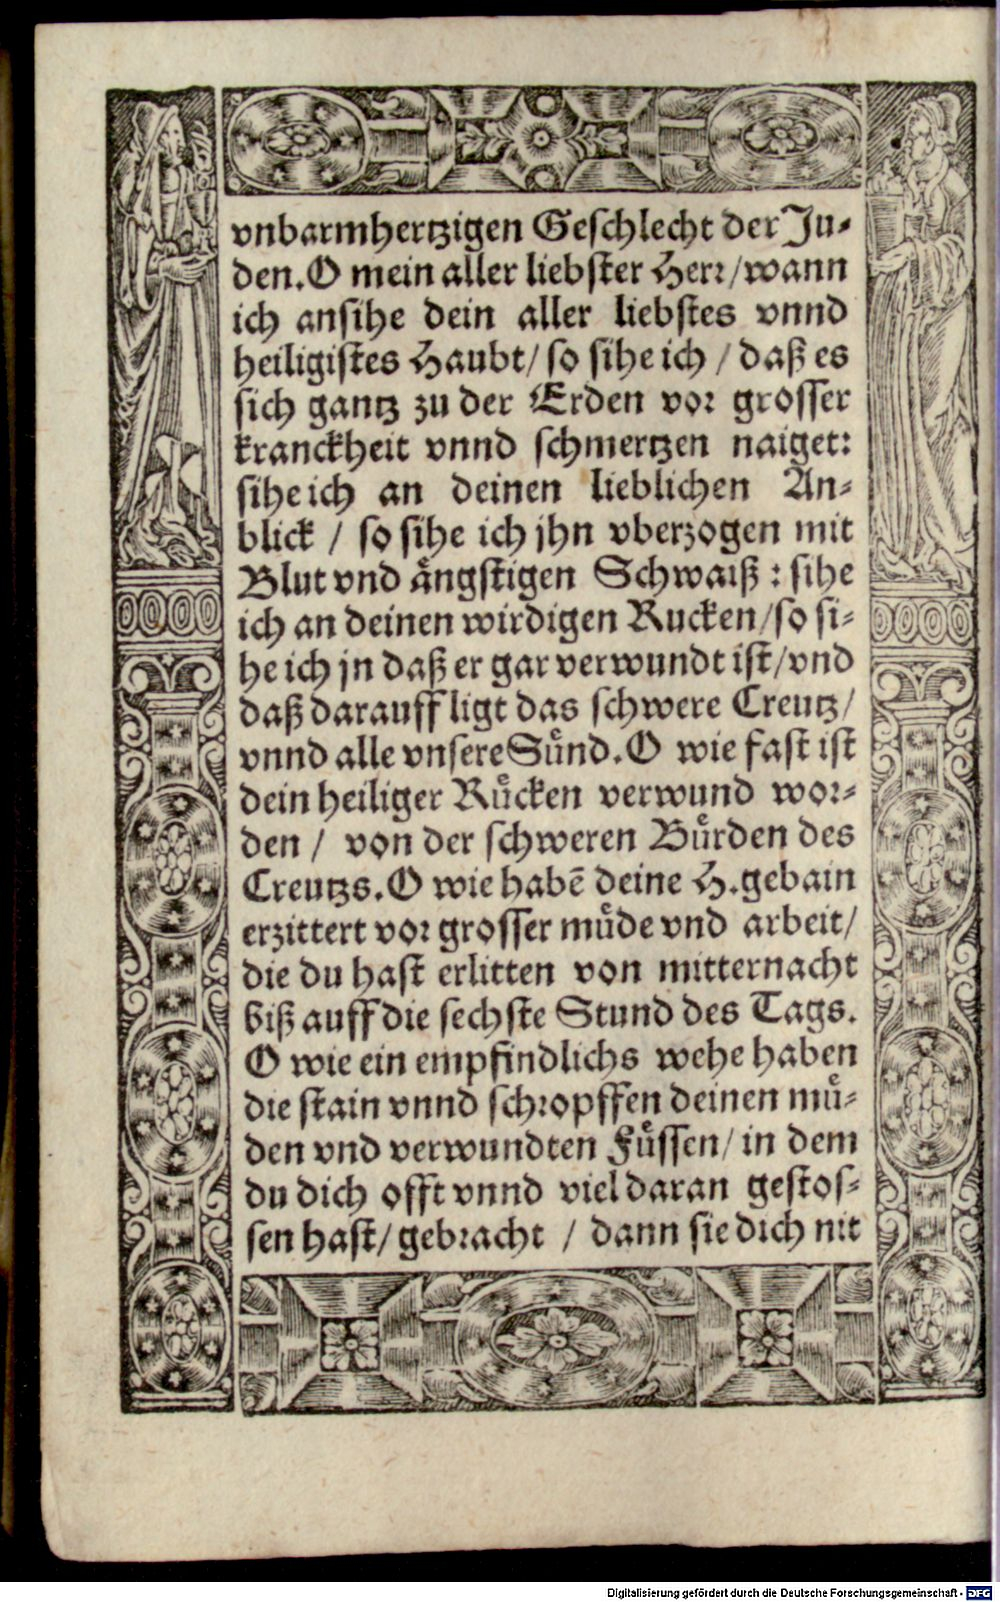 vnbarmhertzigen Geschlecht der Ju⸗
den. O mein aller liebster Herr/ wann
ich ansihe dein aller liebstes vnnd
heiligistes Haubt/ so sihe ich / daß es
sich gantz zu der Erden vor grosser
kranckheit vnnd schmertzen naiget:
sihe ich an deinen lieblichen An⸗
blick / so sihe ich jhn vberzogen mit
Blut vnd ängstigen Schwaiß : sihe
ich an deinen wirdigen Rucken/ so si⸗
he ich jn daß er gar verwundt ist/ vnd
daß darauff ligt das schwere Creutz/
vnnd alle vnsere Sünd. O wie fast ist
dein heiliger Rücken verwund wor⸗
den / von der schweren Bürden des
Creutzs. O wie habē deine H. gebain
erzittert vor grosser müde vnd arbeit/
die du hast erlitten von mitternacht
biß auff die sechste Stund des Tags.
O wie ein empfindlichs wehe haben
die stain vnnd schropffen deinen mü⸗
den vnd verwundten Füssen/ in dem
du dich offt vnnd viel daran gestos⸗
sen hast/ gebracht / dann sie dich nit
Digitalisierung gefördert durch die Deutsche Forschungsgemeinschaft - DFG